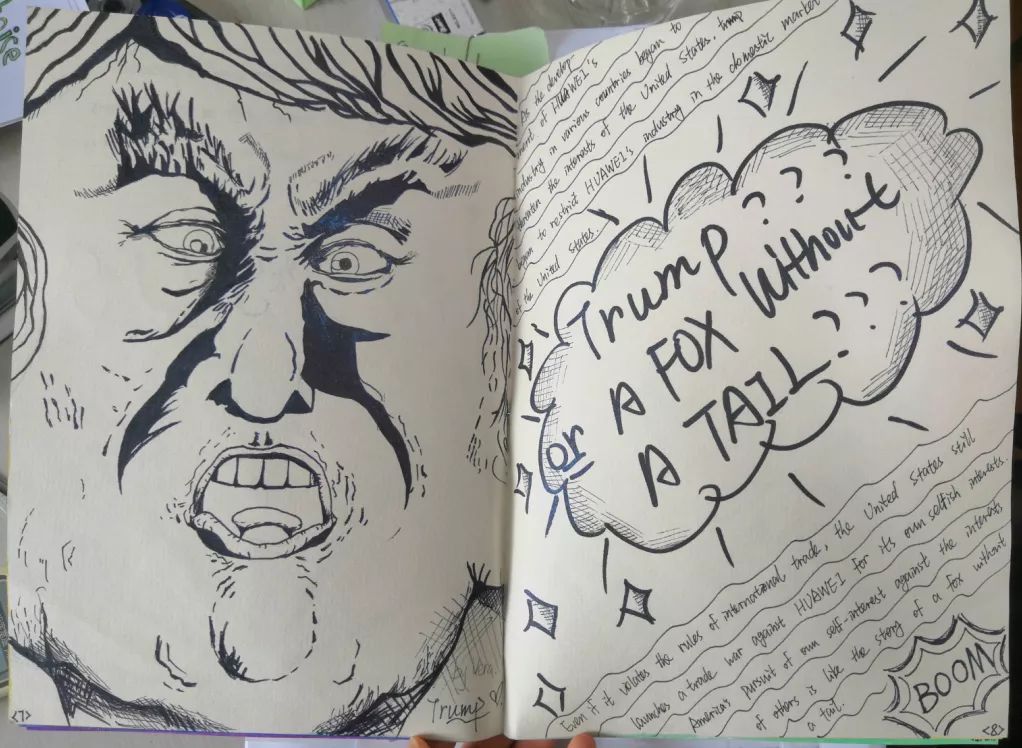 Trump
<7>
As the develop
ment of HUAWEI's
industry in various countries began to
threaten the interests of the United States, Trump
began to restrict HUAWEI's industry in the domestic market
of the United States.
Trump ???
or A FOX without
A TAIL???
Even if it violates the rules of international trade, the United States still
launches a trade war against HUAWEI for its own selfish interests.
America's pursuit of own self-interest against the interests
of others is like the story of a fox without
a tail.
BOOM
<8>